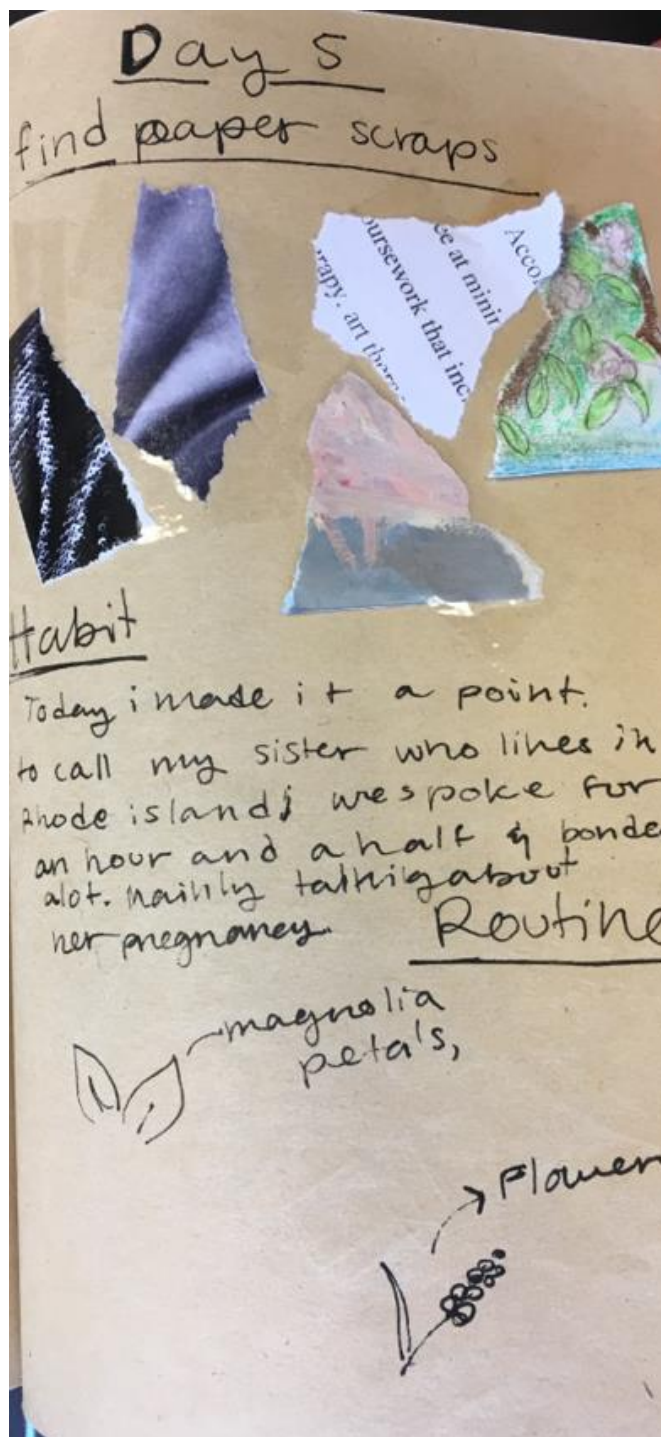 Day 5
find paper scraps
Acco
ce at minin
oursework that inc
rapy, art thera
Habit
Today i made it a point.
to call my sister who lives in
Rhode island; we spoke for
an hour and a half & bonde
alot. mainly talking about
her pregnancy.
Routine
magnolia
petals,
Flower